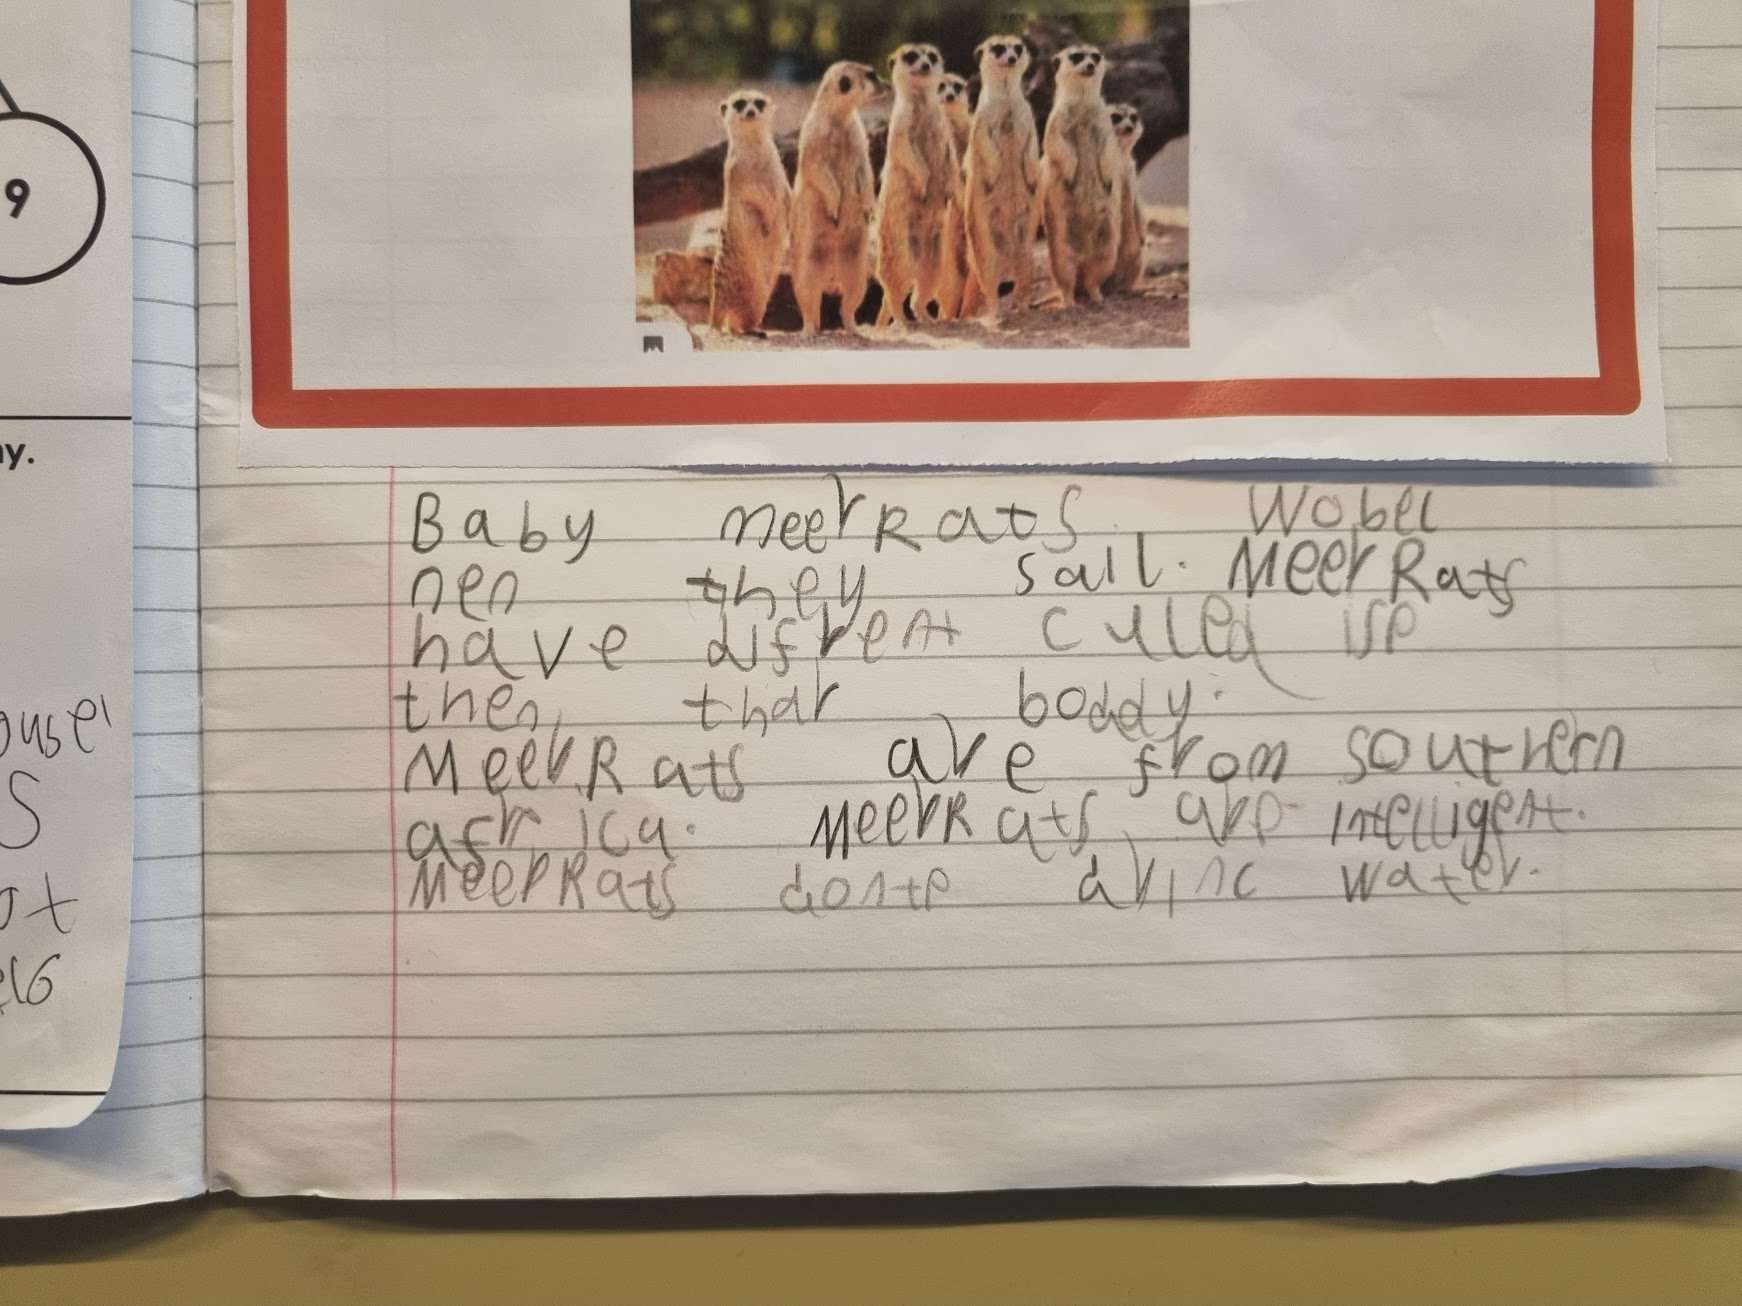 9
y.
ouse
S
ot
Baby meerRats wobel
nen they sall. MeerRats
have difrent culled ise
then thar boddy.
MeerRats are from southern
africa. MeerRats are intelligent.
MeerRats donte drinc water.